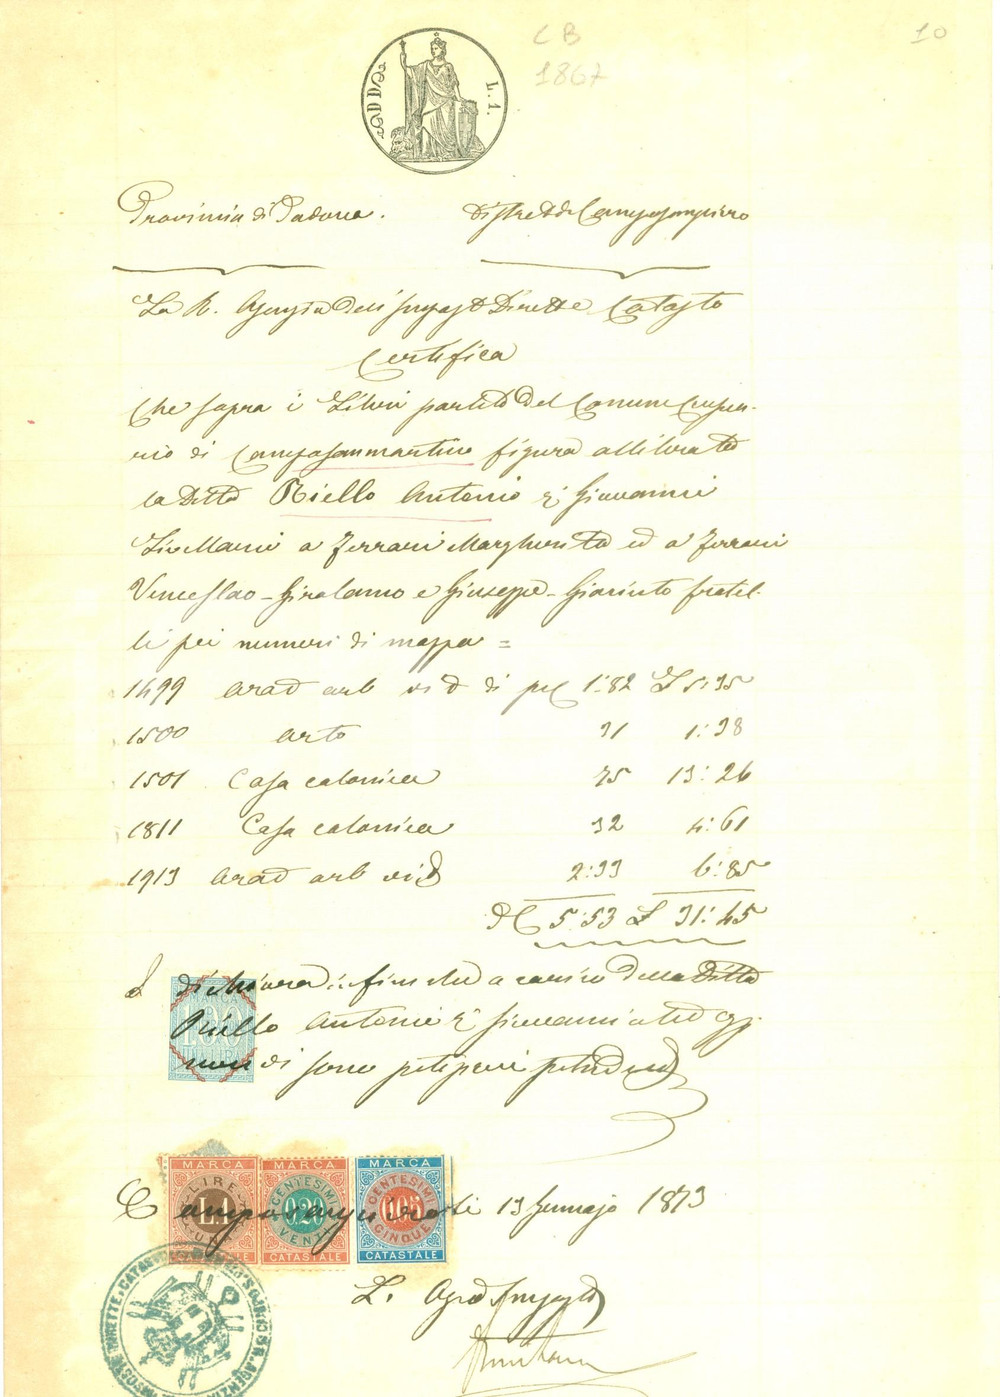 C B 10
1867
L. 1.
Provincia di Padova. Distretto di Camposampiero
La R. Agenzia dell' Imposte Dirette e Catasto
Certifica
Che sopra i Libri partite del Comune Censua-
rio di Camposanmartino figura allibrata
la Ditta Riello Antonio q. Giovanni
Livellario a Ferrari Margherita ed a Ferrari
Venceslao - Girolamo e Giuseppe - Giacinto fratel-
li pei numeri di mappa =
1499 arat arb vit di 1:82 L 5:35
1500 orto 31 1:38
1501 Casa colonica 75 13:26
1811 Casa colonica 32 4:61
1913 arat arb vit 2:33 6:85
5:53 L 31:45
dichiara infine che a carico della Ditta
Riello Antonio q. Giovanni
non vi sono
MARCA MARCA MARCA
LIRE L.1 UNA CENTESIMI 0.20 VENTI CENTESIMI 0.05 CINQUE
Camposampiero li 13 Gennajo 1873
CATASTALE CATASTALE
L'